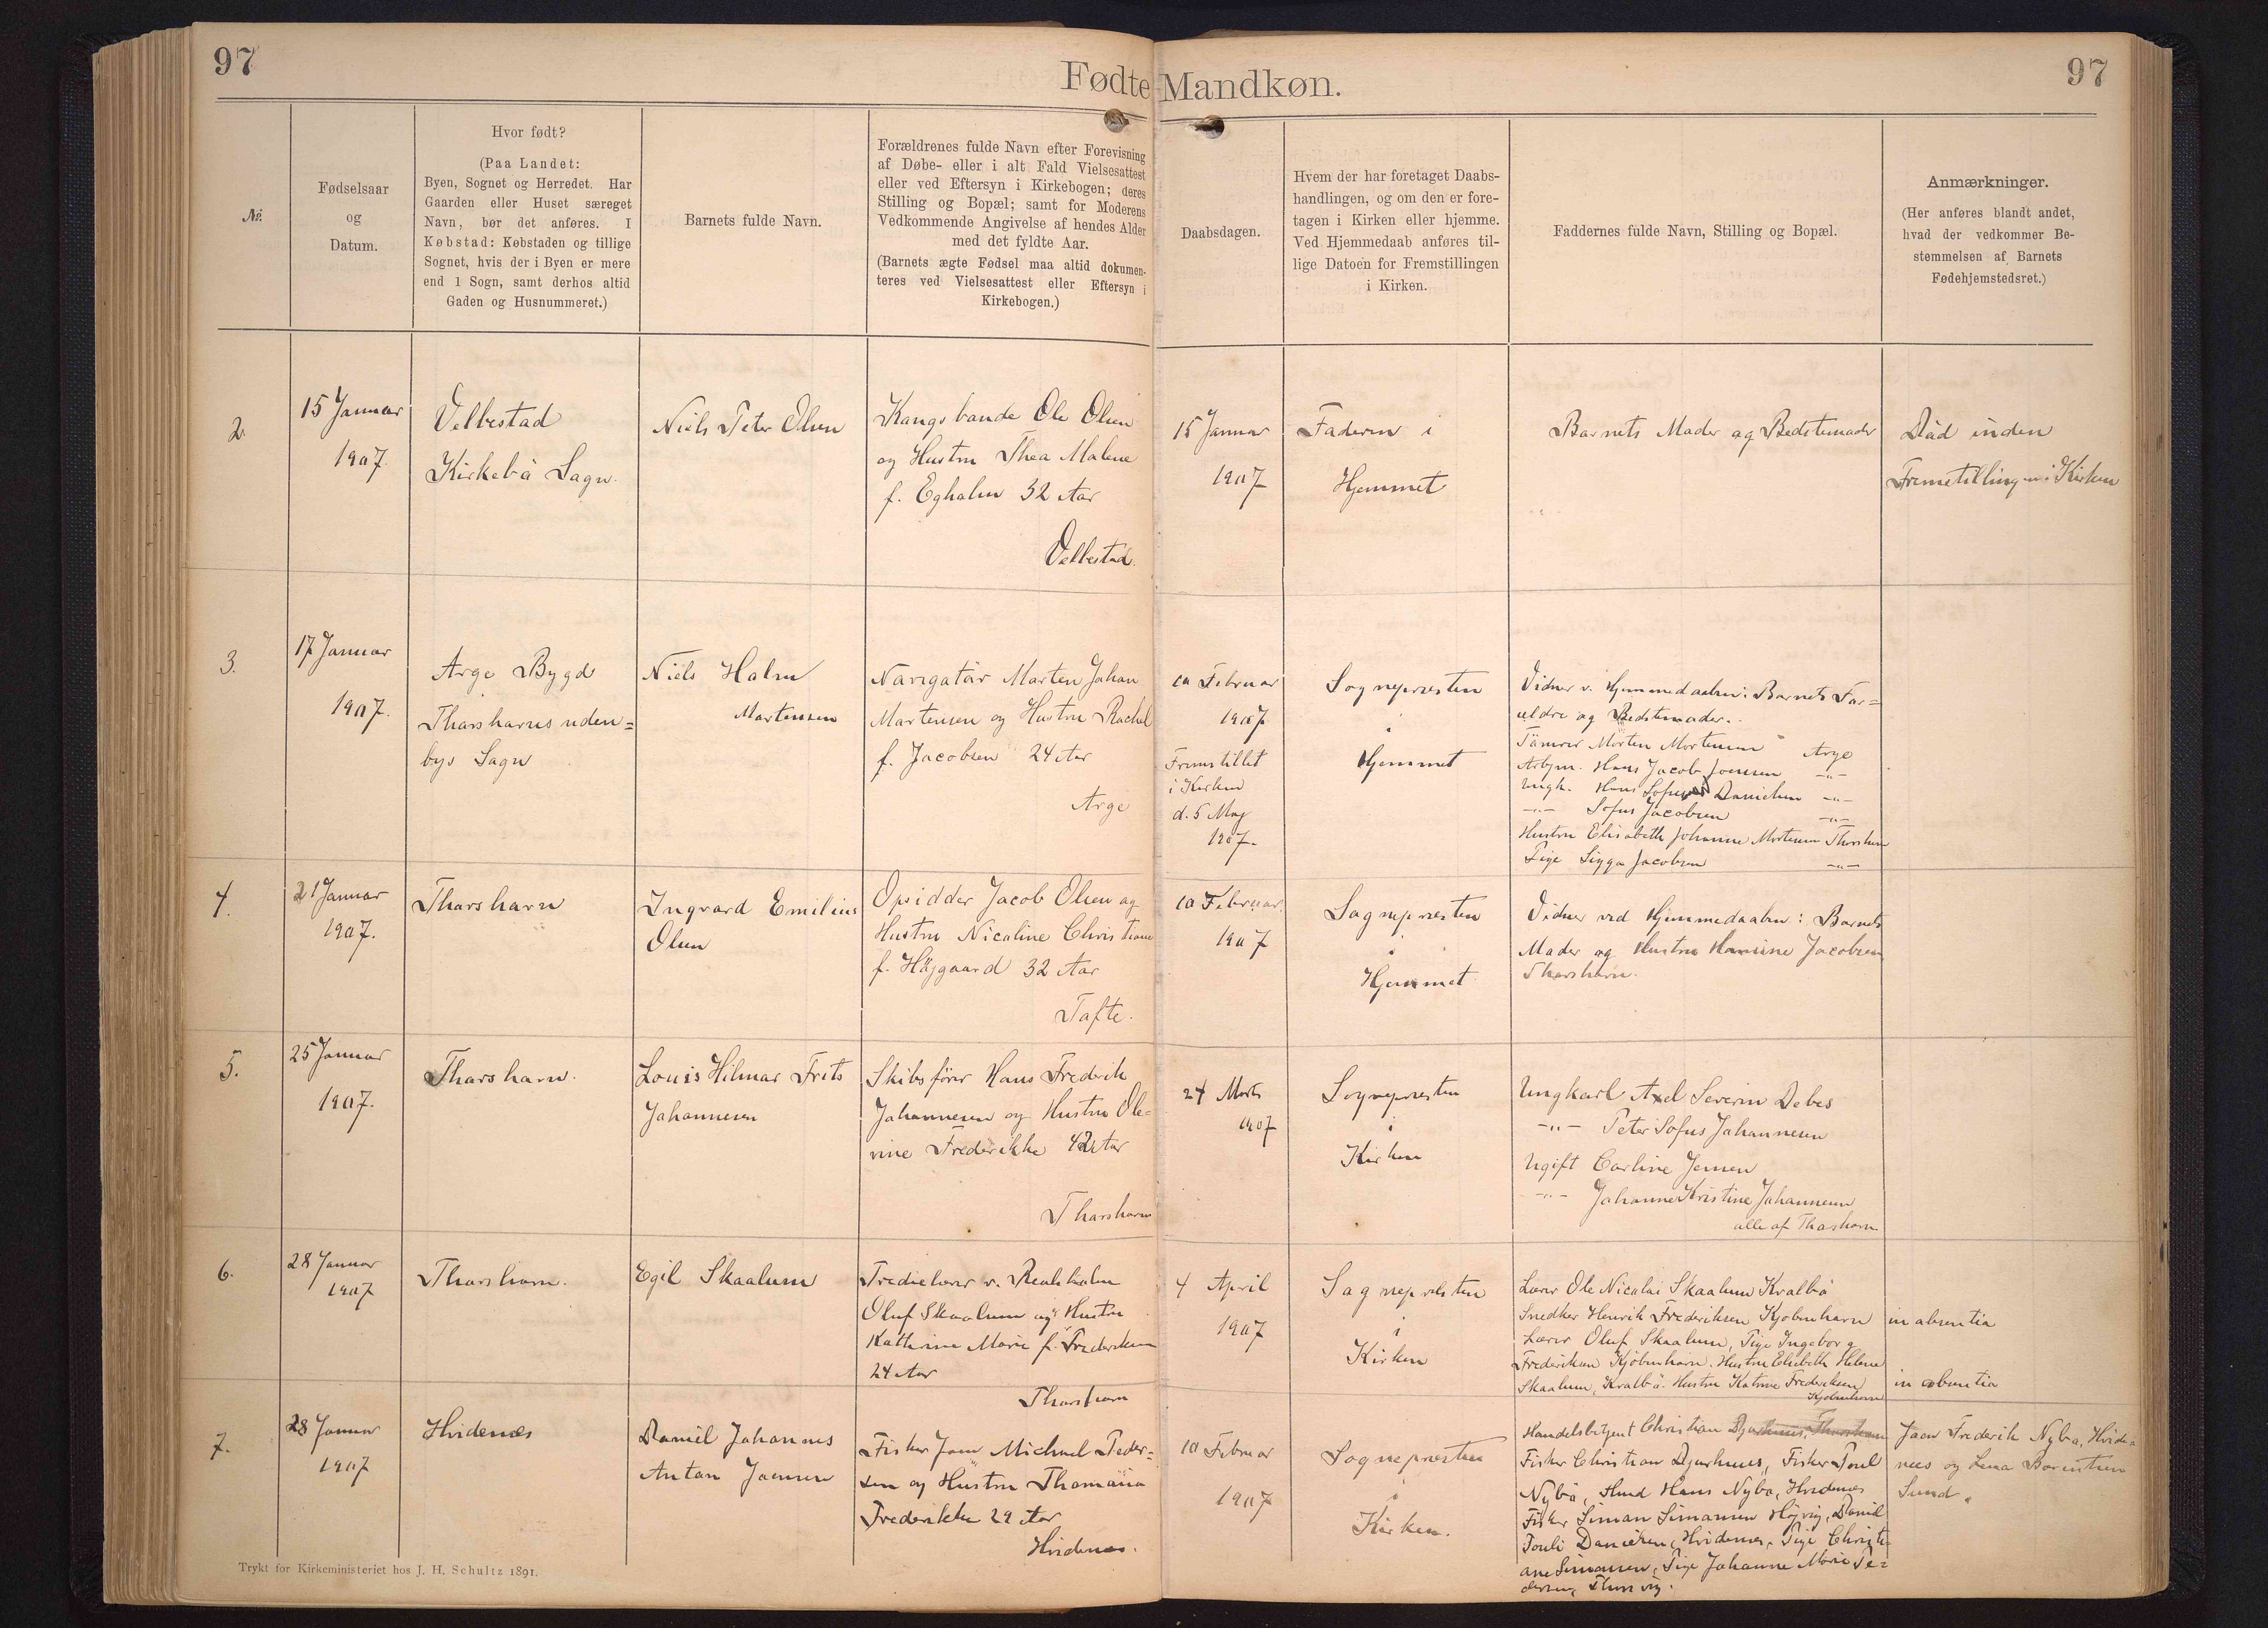 97
Fødte Mandkøn.
97
№
Fødselsaar
og
Datum.
Hvor født?
(Paa Landet:
Byen, Sognet og Herredet. Har
Gaarden eller Huset særeget
Navn, bør det anføres. I
Købstad: Købstaden og tillige
Sognet, hvis der i Byen er mere
end 1 Sogn, samt derhos altid
Gaden og Husnummeret.)
Barnets fulde Navn.
Forældrenes fulde Navn efter Forevisning
af Døbe- eller i alt Fald Vielsesattest
eller ved Eftersyn i Kirkebogen; deres
Stilling og Bopæl; samt for Moderens
Vedkommende Angivelse af hendes Alder
med det fyldte Aar.
(Barnets ægte Fødsel maa altid dokumen-
teres ved Vielsesattest eller Eftersyn i
Kirkebogen.)
Daabsdagen.
Hvem der har foretaget Daabs-
handlingen, og om den er fore-
tagen i Kirken eller hjemme.
Ved Hjemmedaab anføres til-
lige Datoen for Fremstillingen
i Kirken.
Faddernes fulde Navn, Stilling og Bopæl.
Anmærkninger.
(Her anføres blandt andet,
hvad der vedkommer Be-
stemmelsen af Barnets
Fødehjemstedsret.)
2.
15 Januar
1907.
Velbestad
Kirkebö Sogn.
Niels Peter Olsen
Kongsbonde Ole Olsen
og Hustru Thea Malene
f. Egholm 32 Aar
Velbestad.
15 Januar
1907
Faderen i
Hjemmet
Barnets Moder og Bedstemoder
Död inden
Fremstillingen i Kirken
3.
17 Januar
1907.
Arge Bygd
Thorshavns uden=
bys Sogn
Niels Holm
Mortensen
Navigatör Morten Johan
Mortensen og Hustru Rachel
f. Jacobsen 24 Aar
Arge
10 Februar
1907
Fremstillet
i Kirken
d. 5 Maj
1907.
Sognepræsten
i
Hjemmet
Vidner v. Hjemmedaaben: Barnets For=
ældre og Bedstemoder.
Tömrer Morten Mortensen Arge
Arbjm. Hans Jacob Joensen -"-
Ungk. Hans Danielsen -"-
-"- Sofus Jacobsen -"-
Hustru Elisabeth Johanne Mortensen Thorshavn
Pige Sigga Jacobsen -"-
4.
21 Januar
1907.
Thorshavn
Ingvard Emilius
Olsen
Opsidder Jacob Olsen og
Hustru Nicoline Christiane
f. Höjgaard 32 Aar
Tofte.
10 Februar
1907
Sognepræsten
i
Hjemmet
Vidner ved Hjemmedaaben: Barnets
Moder og Hustru Jacobsen
Thorshavn.
5.
25 Januar
1907.
Thorshavn.
Louis Hilmar Frits
Johannesen
Skibsförer Hans Frederik
Johannesen og Hustru Ole=
vine Frederikke 42 Aar
Thorshavn
24 Marts
1907
Sognepræsten
i
Kirken
Ungkarl Axel Severin Debes
-"- Peter Sofus Johannesen
Ugift Carline Jensen
-"- Johanne Kristine Johannesen
alle af Thorshavn
6.
28 Januar
1907
Thorshavn.
Egil Skaalum
Tredielærer v. Realskolen
Oluf Skaalum og Hustru
Kathrine Marie f. Frederiksen
24 Aar
Thorshavn
4 April
1907
Sognepræsten
i
Kirken
Lærer Ole Nicolai Skaalum Kvalbö
Snedker Henrik Frederiksen Kjöbenhavn
in absentia
Lærer Oluf Skaalum, Pige Ingeborg
Frederiksen Kjöbenhavn. Hustru Elsebeth Helene
Skaalum, Kvalbö. Hustru Katrine Frederiksen
Kjöbenhavn
in absentia
7.
28 Januar
1907
Hvidenæs
Daniel Johannes
Anton Joensen
Fisker Joen Michael Peder=
sen og Hustru Thomasia
Frederikke 29 Aar
Hvidenæs.
10 Februar
1907
Sognepræsten
i
Kirken.
Handelsbetjent Christian Djurhuus, Thorshavn
Fisker Christian Djurhuus, Fisker Poul
Nybö, Hans Nybö, Hvidenæs
Fisker Simon Simonsen Höjvig, Daniel
Pouli Danielsen, Hvidenæs, Pige Christi-
ane Simonsen, Pige Johanne Marie Pe=
dersen,
Joen Frederik Nybö, Hvide=
næs og Lena Berentsen
Sund.
Trykt for Kirkeministeriet hos J. H. Schultz 1891.